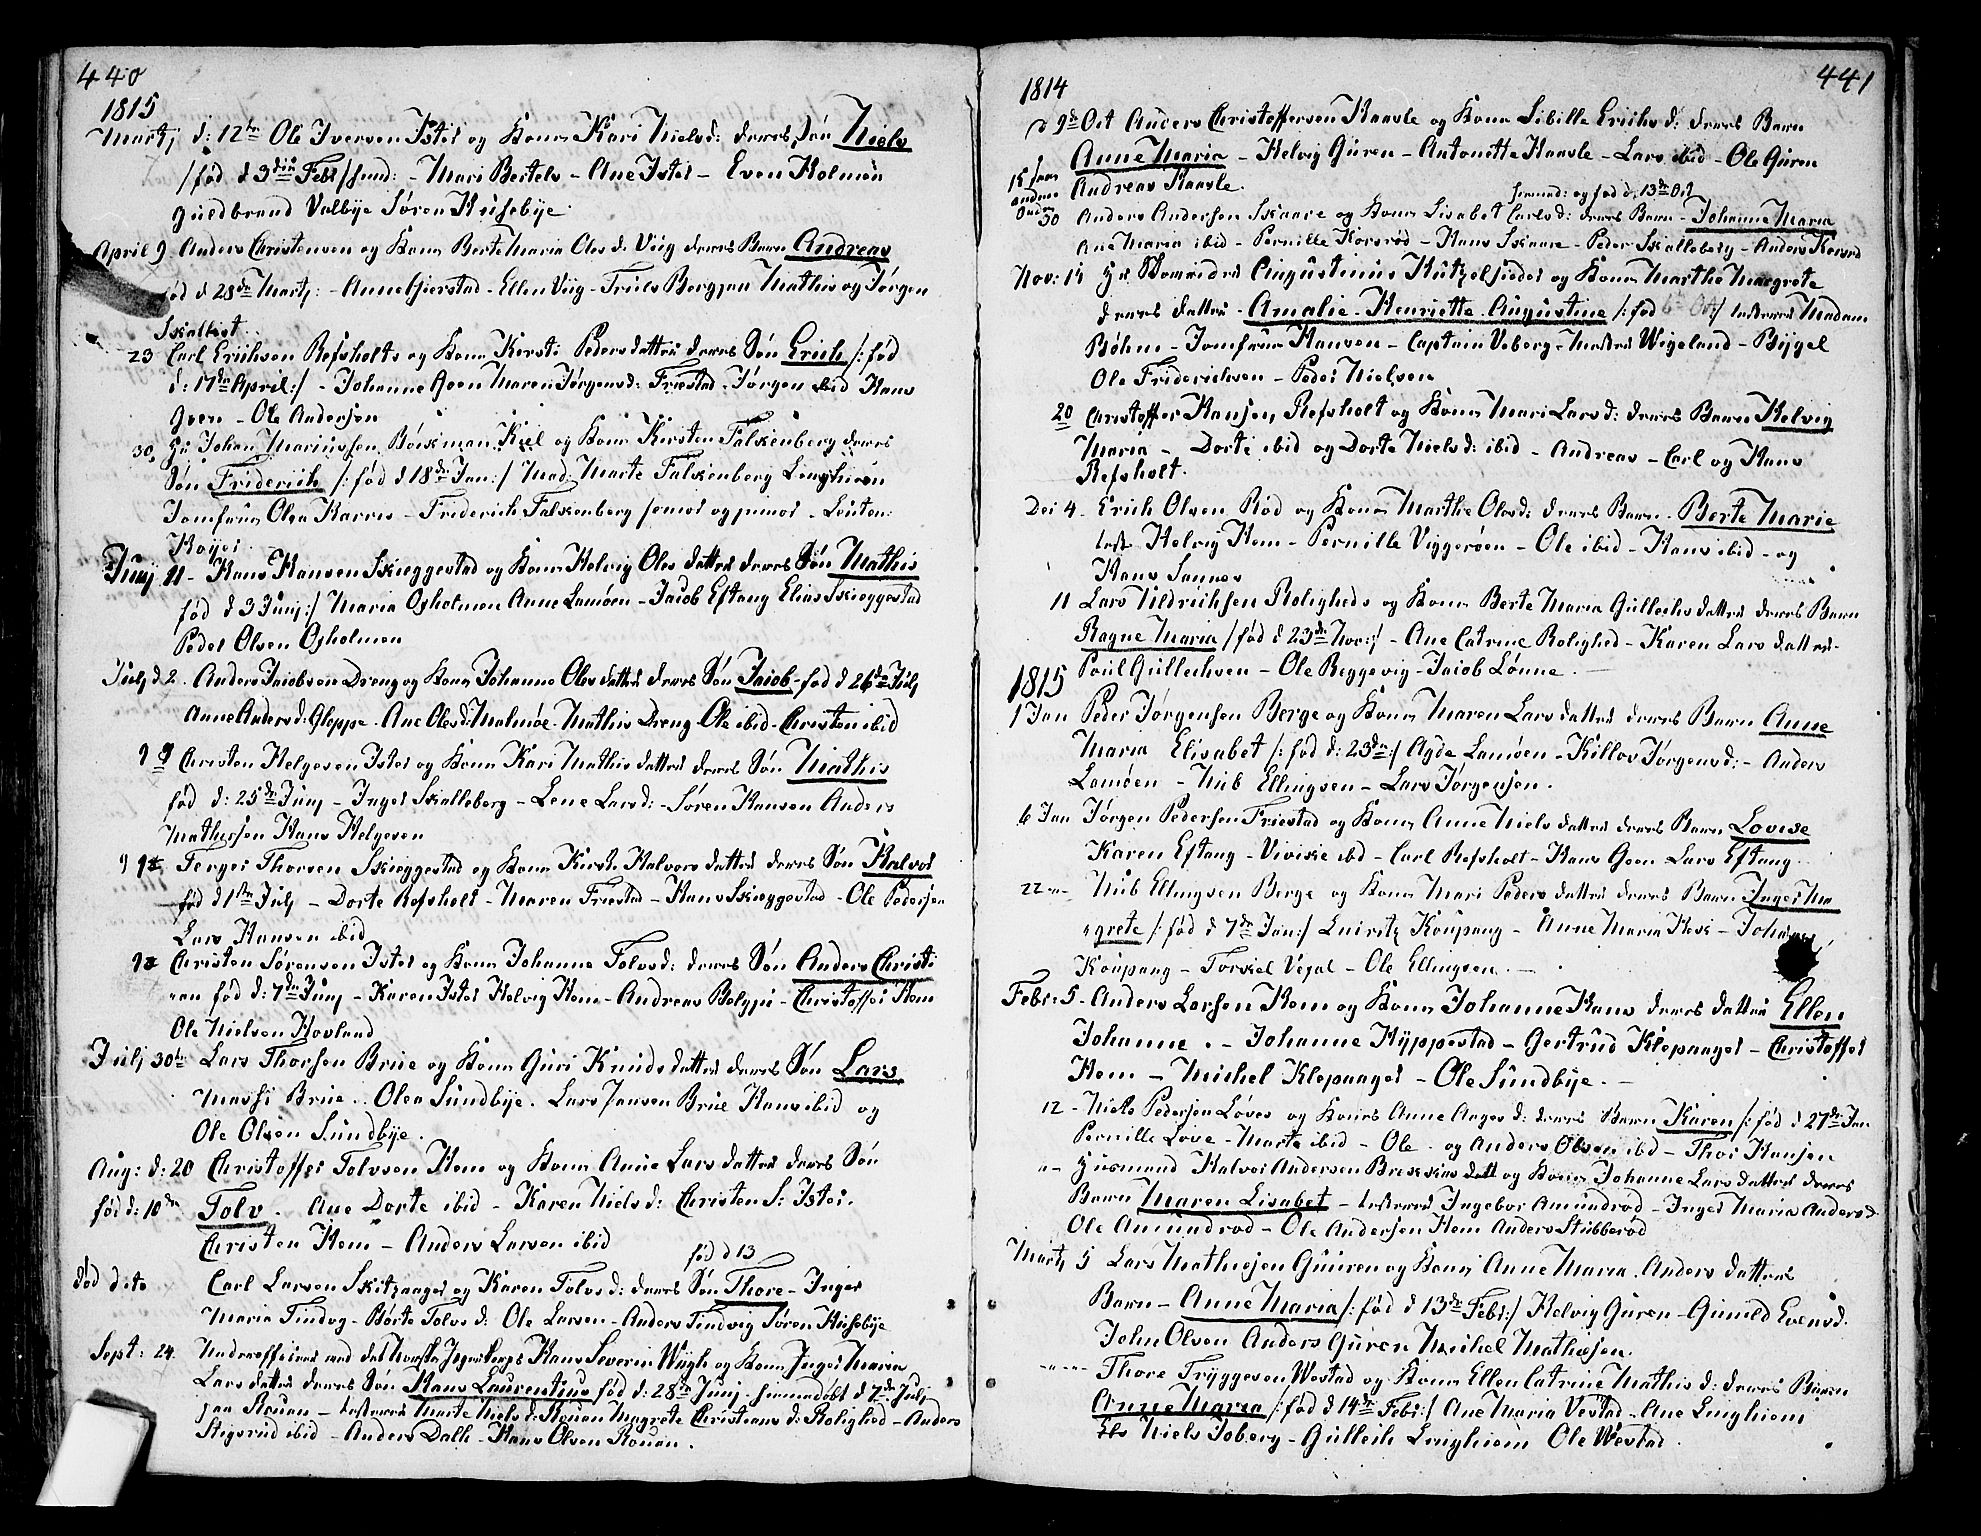 440
1815
Martj d: 12te Ole Iversen Istre og Kone Kari Nielsd: deres Søn Niels
/fød d 3die Febr/ - Mari Bertels - Ane Istre - Even Holmen
Guldbrand Valbye Søren Husebye
April 9 Anders Christensen og Kone Berte Maria Olsd. Viig deres Barn Andreas
fød d 28de Martj: - Anne Gierstad - Ellen Viig - Truls Bergan Mathis og Jørgen
Skallist
23 Carl Erichsen Refsholts og Kone Kirsti Pedersdatter deres Søn Erich /:fød
d: 17de April:/ - Johanne Goen Maren Jørgensd: Friestad - Jørgen ibid Hans
Goen - Ole Andersen
30 Hr Johan Mariussen Böckman Kiel og Kone Kirsten Falkenberg deres
Søn Friderich /:fød d 18de Jan:/ Mad: Marte Falkenberg Linghiem
Jomfrue Olea Harres - Friderich Falkenberg senior og junior - Leuten:
Høyer
Junj 11 - Hans Hansen Skieggestad og Kone Helvig Olesdatter deres Søn Mathis
fød d 3 Junj:/ Maria Oxholmen Anne Lamøen - Jacob Eftang Elias Skieggestad
Peder Olsen Oxholmen
Julj d 2. Anders Jacobsen Dreng og Kone Johanne Olesdatter deres Søn Jacob - fød d 26de Julj
Anne Andersd: Gloppe - Ane Olesd: Malmøe - Mathis Dreng Ole ibid - Christen ibid
9 Christen Helgesen Istre og Kone Kari Mathisdatter deres Søn Mathis
fød d: 25de Junj - Inger Skalleberg - Lene Larsd: - Søren Hansen Anders
Mathisen Hans Helgesen
Terger Thorsen Skieggestad og Kone Kirsti Halvorsdatter deres Søn Halvor
fød d 1ste Julj - Dorte Refsholt - Maren Friestad - Hans Skieggestad - Ole Pedersen
Lars Hansen ibid
Christen Sørensen Istre og Kone Johanne Tolvsd: deres Søn Anders Christi
an fød d: 7de Junj - Karen Istre Helvig Hem - Andreas - Christoffer Hem
Ole Nielsen Hovland
Julj 30te Lars Thorsen Brue og Kone Guri Knudsdatter deres Søn Lars
Marthe Brue. Olea Sundbye. Lars Jansen Brue Hans ibid og
Ole Olsen Sundbye.
Aug: d: 20 Christoffer Tolvsen Hem og Kone Anne Larsdatter deres Søn
fød d: 10de Tolv. Ane Dorte ibid - Karen Nielsd: Christen S: Istre.
Christen Hem - Anders Larsen ibid
fød d 13
dito Carl Larsen Skitzager og Karen Tolvsd: deres Søn Thore - Inger
Maria Tindvig - Børte Tolvsd: Ole Larsen - Anders Tindvig Søren Husebye
Sept: 24 Underofficeer ved det Norske Jegerkorps Hans Severin Wigh og Kone Inger Maria
Larsdatter deres Søn Hans Laurentius fød d: 28de Junj - hiemmedøbt d 7de Julj
- Marte Nielsd: Rouan Magrete Christiansd: Rolighed - Anders
Stigsrud ibid - Anders Dalh - Hans Olsen Rouan.
441
1814
9de Oct Anders Christoffersen Haasle og Kone Sibille Erichsd: deres Barn
Anne Maria - Helvig Guren - Antonette Haasle - Lars ibid - Ole Guren
Andreas Haasle.
hiemmed: og fød d. 13de Oct
30 Anders Andersen Skaare og Kone Lisabet Carlsd: deres Barn - Johanne Maria
Ane Maria ibid - Pernille Korsrød - Hans Skaare - Peder Skalleberg - Anders Korsrød
Nov: Hr Augustinus og Kone Marthe Margrete
deres datter - Amalie Henriette Augustine /:fød Oct:/ testerer Madam
Böhm - Jomfrue Hansen - Captain Veberg - Wigeland - Bygel
Ole Friderichsen - Peder Nielsen
20 Christoffer Hansen Refsholt og Kone Mari Larsd: deres Barn Helvig
Maria - Dorti ibid og Dorte Nielsd: ibid - Andreas - Carl og Hans
Refsholt.
Dec 4. Erich Olsen Rød og Kone Marthe Olesd: deres Barn - Berte Marie
test Helvig Hem - Pernille Viggerøen - Ole ibid - Hans ibid - og
Hans Sannes
11 Lars Tildrichsen Roligheds og Kone Berte Maria Gullichsdatter deres Barn
Ragne Maria /fød d 23de Nov:/ - Ane Catrine Rolighed - Karen Larsdatter -
Povil Gullichsen - Ole Reggevig - Jacob Lønne.
1815
1 Jan Peder Jørgensen Berge og Kone Maren Larsdatter deres Barn Anne
Maria Elisabet /:fød d: 23de:/ Agde Lamøen - Killov Jørgensd: - Anders
Lamøen - Nub Ellingsen - Lars Jørgensen.
6 Jan Jørgen Pedersen Friestad og Kone Anne Nielsdatter deres Barn Lovise
Karen Eftang - Viviske ibd - Carl Refsholt - Hans Goen Lars Eftang.
22 - Nub Ellingsen Berge og Kone Mari Pedersdatter deres Barn Inger Ma
grete /:fød d 7de Jan:/ Kaupang - Anne Maria - Johannes
Kaupang - Torkiel Vegal - Ole Ellingsen. -
Febr: 5. Anders Larsen Hem og Kone Johanne Hans deres datter Ellen
Johanne. - Johanne Hyppestad - Gertrud Klepaager - Christoffer
Hem - Michel Klepaager - Ole Sundbye. -
12 - Niels Pedersen Løver og Kones Anne Aagesd: deres Barn Karen /:fød d 27de Jan
Pernille Løve - Marte ibid - Ole og Anders Olsen ibid - Thor Hansen
Husmand Halvor Andersen og Kone Johanne Larsdatter deres
Barn Maren Lisabet - testerer Ingebor Amundrød - Inger Maria Andersd
Ole Amundrød - Ole Andersen Hem Anders Stubberød
Martj 5 Lars Mathisen Guuren og Kone Anne Maria Andersdatter
Barn - Anne Maria /:fød d 13de Febr:/ Helvig Guren - Gunild Evensd.
John Olsen Anders Guren Michel Mathisen.
Thore Tryggesen Westad og Kone Ellen Catrine Mathisd: deres Barn
Anne Maria /:fød d 14de Febr:/ Ane Maria Vestad - Ane Linghiem
Niels Joberg - Gullich Linghiem Ole Westad.